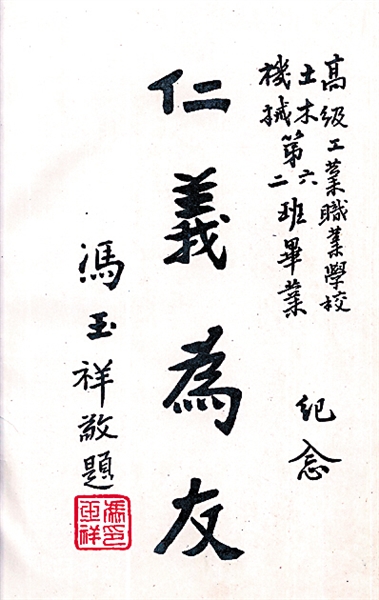 高級工業職業學校
土木
機械
第
六
二
班畢業
紀念
仁義為友
馮玉祥敬題
馮印
玉祥